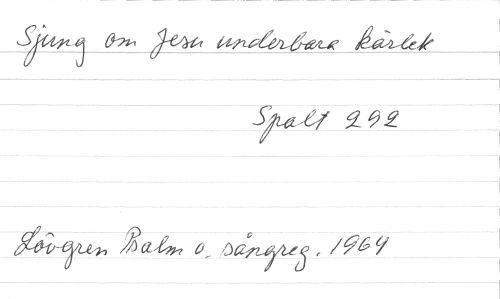 Sjung om Jesu underbara kärlek
Spalt 292
Lövgren Psalm o. sångreg. 1964